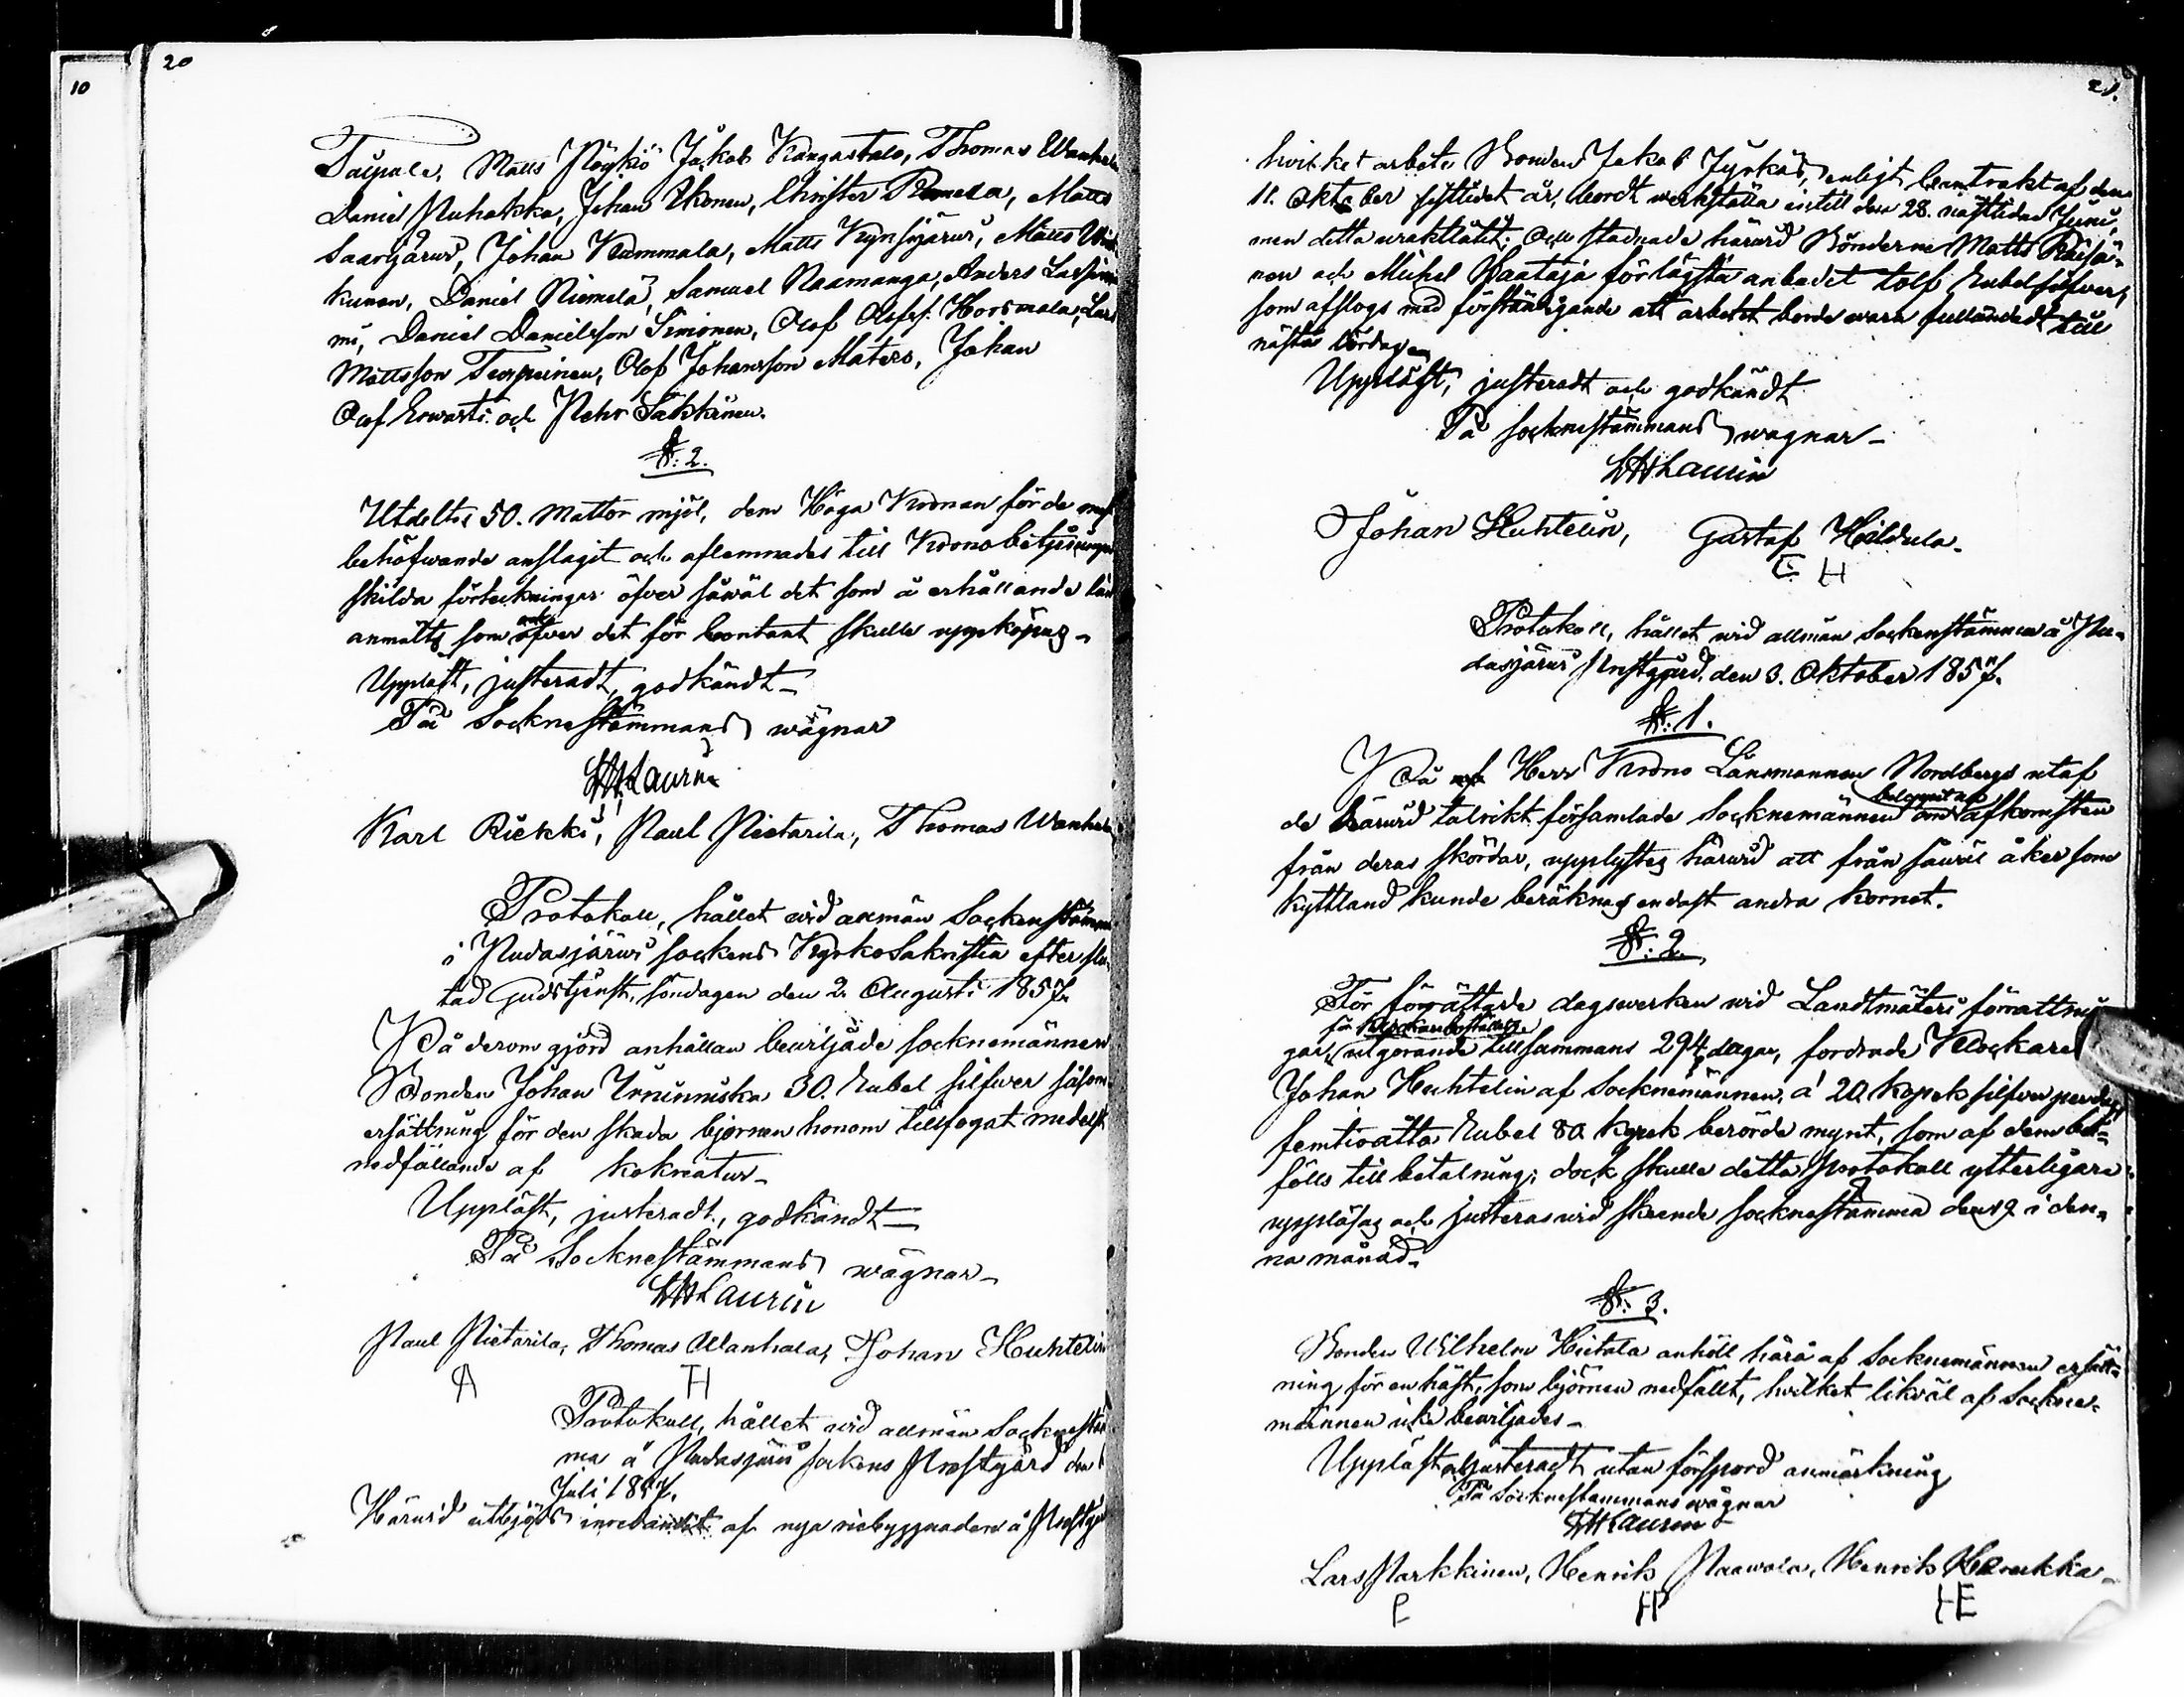 10
20
Taipale, Matts Pöykiö Jakob Kangastalo, Thomas Wanhala
Daniel Puhakka, Johan Ikonen, Christer Romela, Matts
Saarijärwi, Johan Kummala, Matts Kynsijärwi, Matts
kunen, Daniel Niemelä, Samuel Naamanga, Anders
mi, Daniel Danielsson Simonen, Olof Olofss. Horsmala, Lars
Mattsson Terpeinen, Olof Johansson Matero, Johan
Olof Erwasti och Petter Säkkinen.
§: 2.
Utdeltes 50. Mattor mjöl, dem Höga Kronan för de
behöfwande anslagit och aflemnades till Kronobetjeningen
skilda förteckningar öfver såwäl det som å erhållande lån
anmälts som ock öfver det för contant skulle uppköpas –
Uppläst, justeradt, godkändt –
På Socknestämmans wägnar
Laurin
Karl Riekki, Paul Pietarila, Thomas Wanhala
Protokoll, hållet wid allmän Sockenstämma
i Pudasjärwi sockens Kyrko Sakristia efter slu
tad Gudstjenst, söndagen den 2. Augusti 1857.
På derom gjord anhållan bewiljade socknemännen
Bonden Johan Irninniska 30. Rubel silfwer såsom
ersättning för den skada björnen honom tillfogat medelst
nedfällande af kokreatur –
Uppläst, justeradt, godkändt –
På Socknestämmans wägnar –
Laurin
Paul Pietarila, Thomas Wanhala, Johan Huhtelin
A TH
Protokoll, hållet wid allmän Socknestäm
ma å Pudasjärwi sockens Prestgård den
Juli 1857.
Härwid utbjöds inredandet af nya riebyggnaden å Prestgår
21.
hwilket arbete Bonden Jakob Jyrkäs, enligt Contrakt af den
11. Oktober sistlidet år, bordt werkställa intill den 28. nästlidne Juni,
men detta uraktlåtit; och stadnade härwid Bönderne Matts Räisä-
nen och Michel Paataja för lägsta anbudet tolf Rubel silfwer,
som afslogs med förständigande att arbetet borde wara fulländadt till
nästa lördagen
Uppläst, justeradt och godkändt
På socknestämmans wägnar –
Laurin
Johan Huhtelin, Gustaf Hildula.
G H
Protokoll, hållet wid allmän Sockenstämma å Pu-
dasjärwi Prestgård, den 3. Oktober 1857.
§: 1.
På af Herr Krono Länsmannen Nordbergs utaf
de härwid talrikt församlade Socknemännen om afkomsten
från deras skördar, upplystes härwid att från såwäl åker som
kyttland kunde beräknas endast andra kornet.
§: 2.
För förrättade dagswerken wid Landtmäteri förrättnin
för Klockarebostället
gar, utgörande tillsammans 294 dagar, fordrade Klockare
Johan Huhtelin af Socknemännen, à 20 kopek silfwer per dag
femtioåtta Rubel 80 kopek berörde mynt, som af dem bi-
fölls till betalning; dock skulle detta protokoll ytterligare
uppläsas och justeras wid skeende socknestämma den 19 i den-
na månad.
§: 3.
Bonden Wilhelm Hietala anhöll härå af Socknemännen ersätt-
ning för en häst, som björnen nedfällt, hwilket likwäl af Sockne-
männen icke bewiljades –
Uppläst och justeradt utan förspord anmärkning
På Socknestämmans wägnar
Laurin
Lars Parkkinen, Henrik Paawola, Henrik
P HP HE